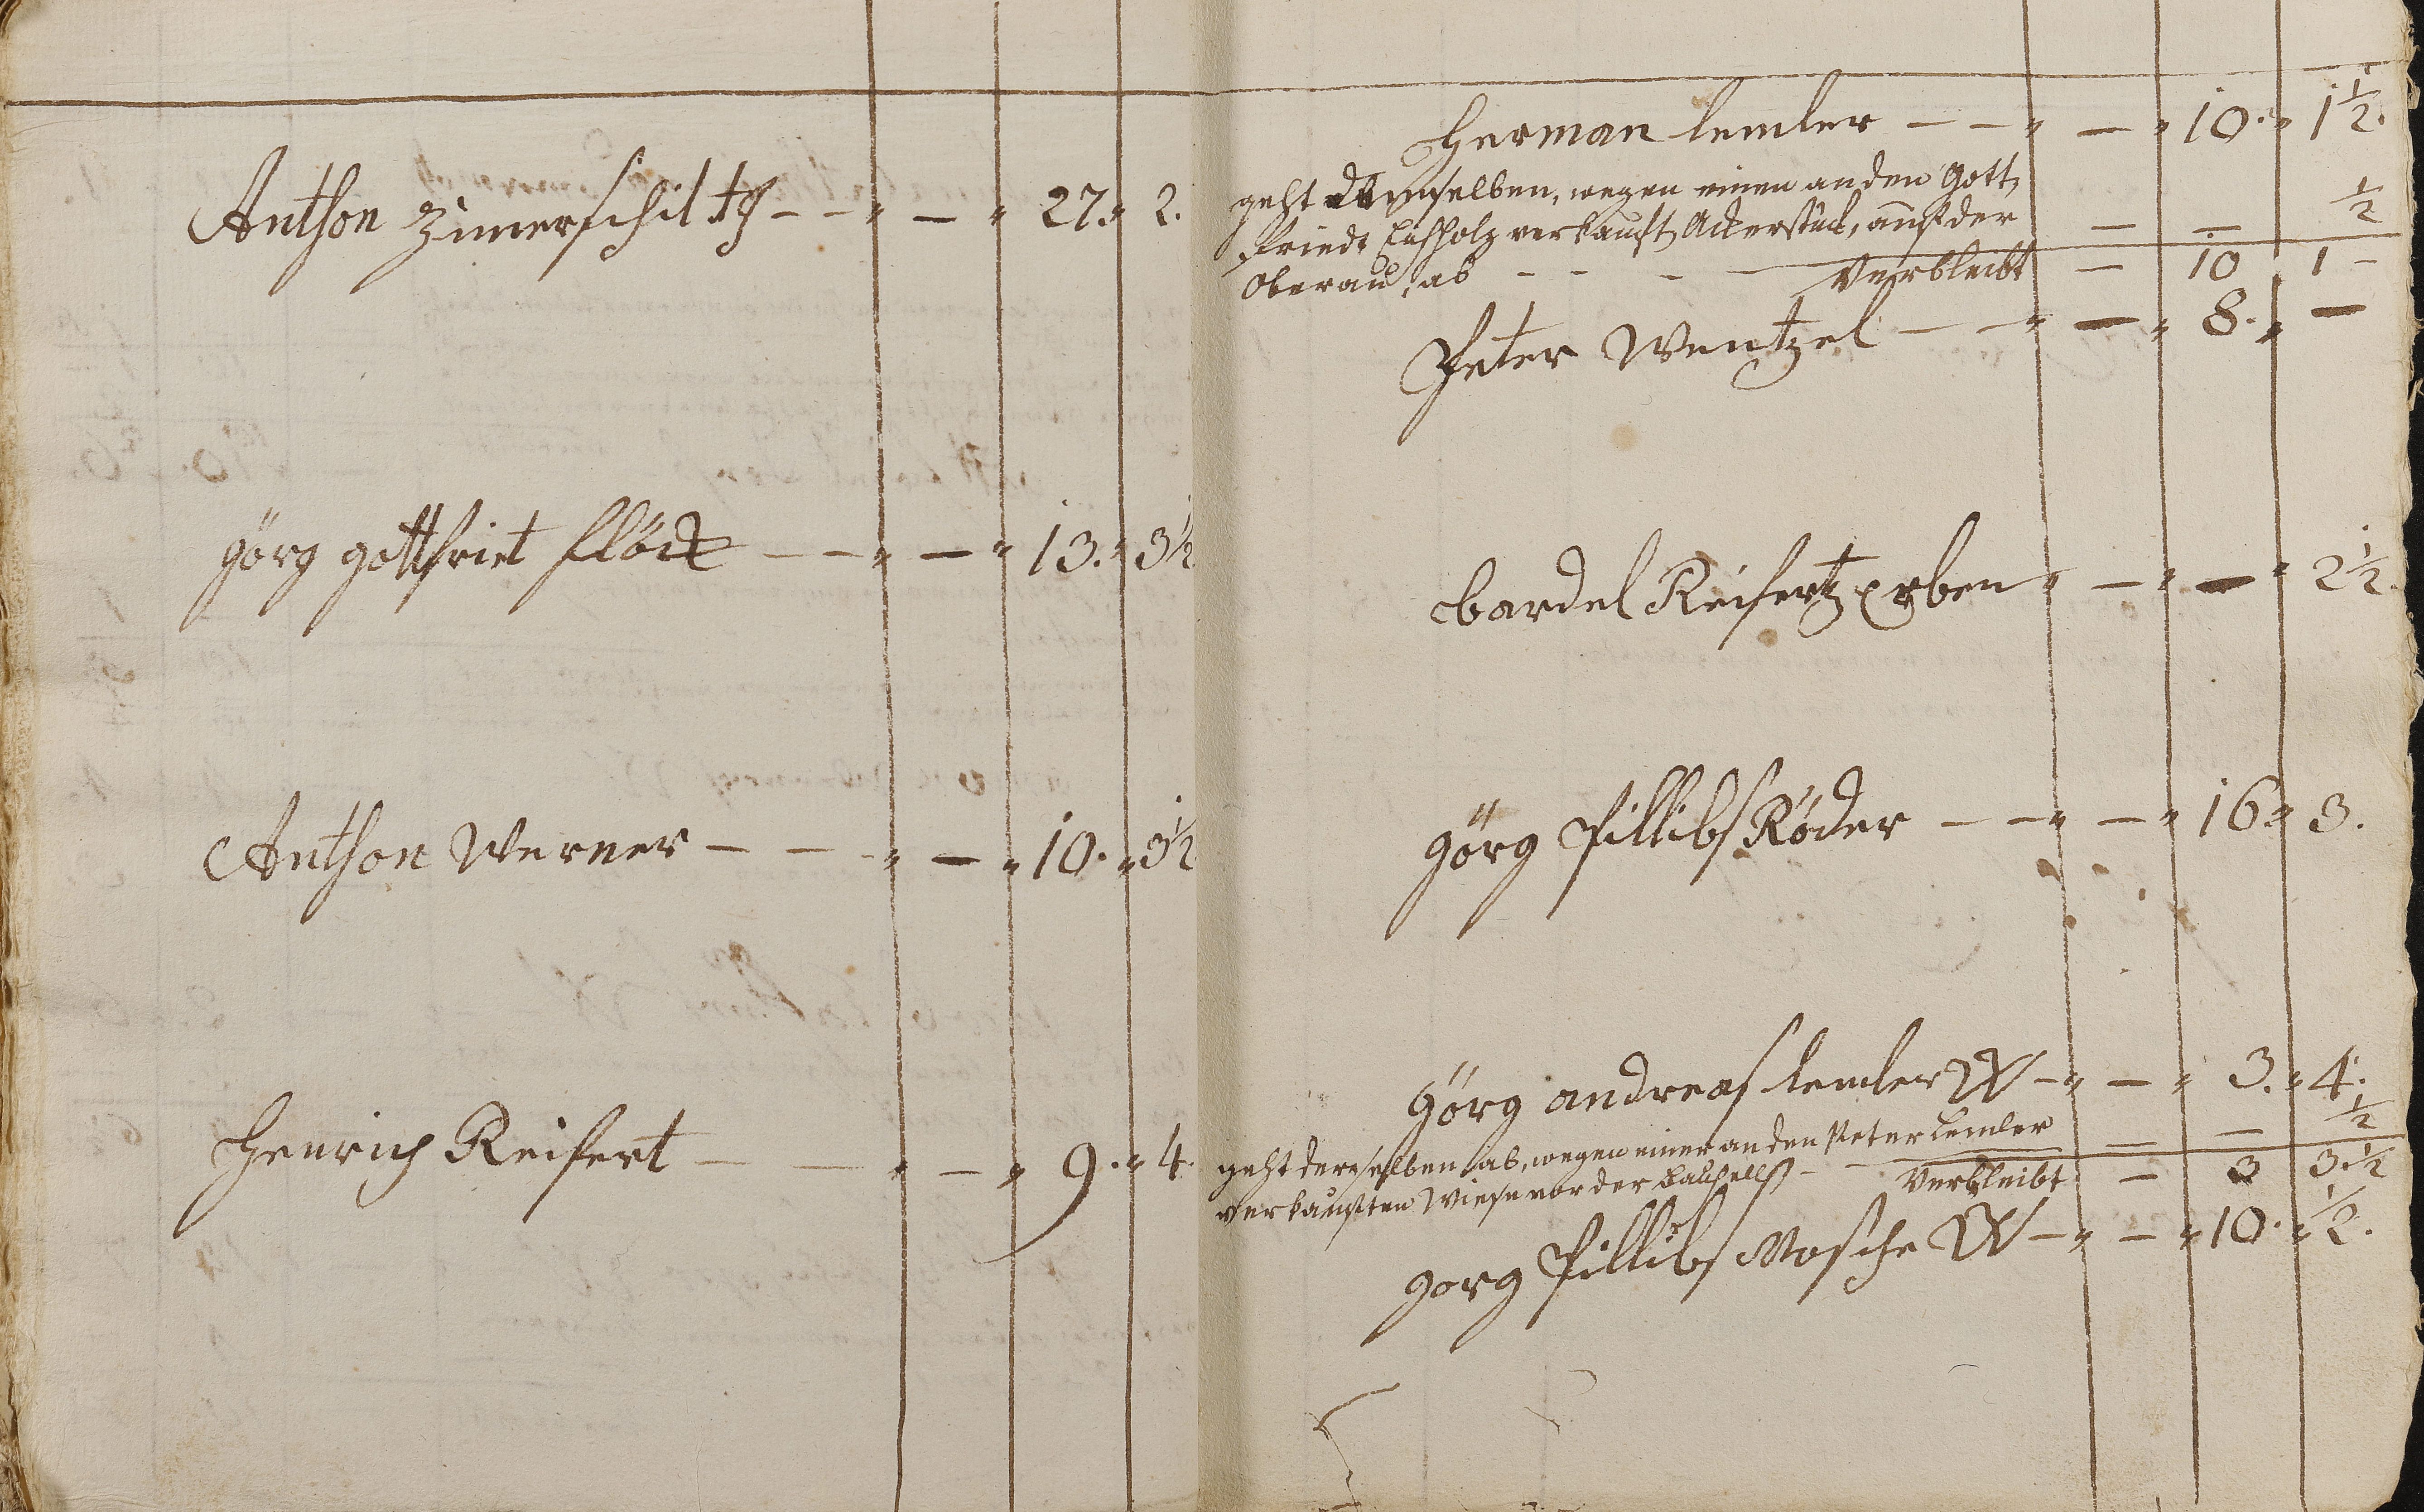 Anthon Zimerschiltg — — " — " 27. " 2.
görg gottfriet flöck — — " — " 13. " 3½
Anthon Werner — — — " — " 10. " 3½
Henrich Reifert — — " — " 9. " 4.
Herman lemler — — " — " 10. " 1½.
geht demselben, wegen einen an den Gott,
friedt Eichholz verkauft, Ackerstück, auf der — — ½
Oberau, ab - - - — Verbleibt — 10 1 -
Peter Wentzel — — " — " 8. " —
bardel Reifertz Erben " — " — " 2½.
görg Pillibs Röder — — " — " 16 " 3.
görg andreas lemler W — " — " 3. " 4.
geht derselben ab, wegen einer an den Peter Lemler — — ½
verkauften Wiese vor der — Verbleibt — 3 3½
gorg Pillibs Mosche W — " — " 10. " ½.